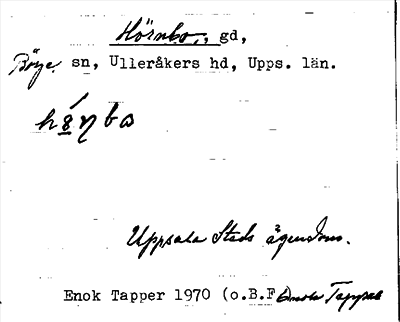 Hörnbo, gd,
Börje sn, Ulleråkers hd, Upps. län.
Uppsala Stads ägendom.
Enok Tapper 1970 (o.B.F Enok Tapper